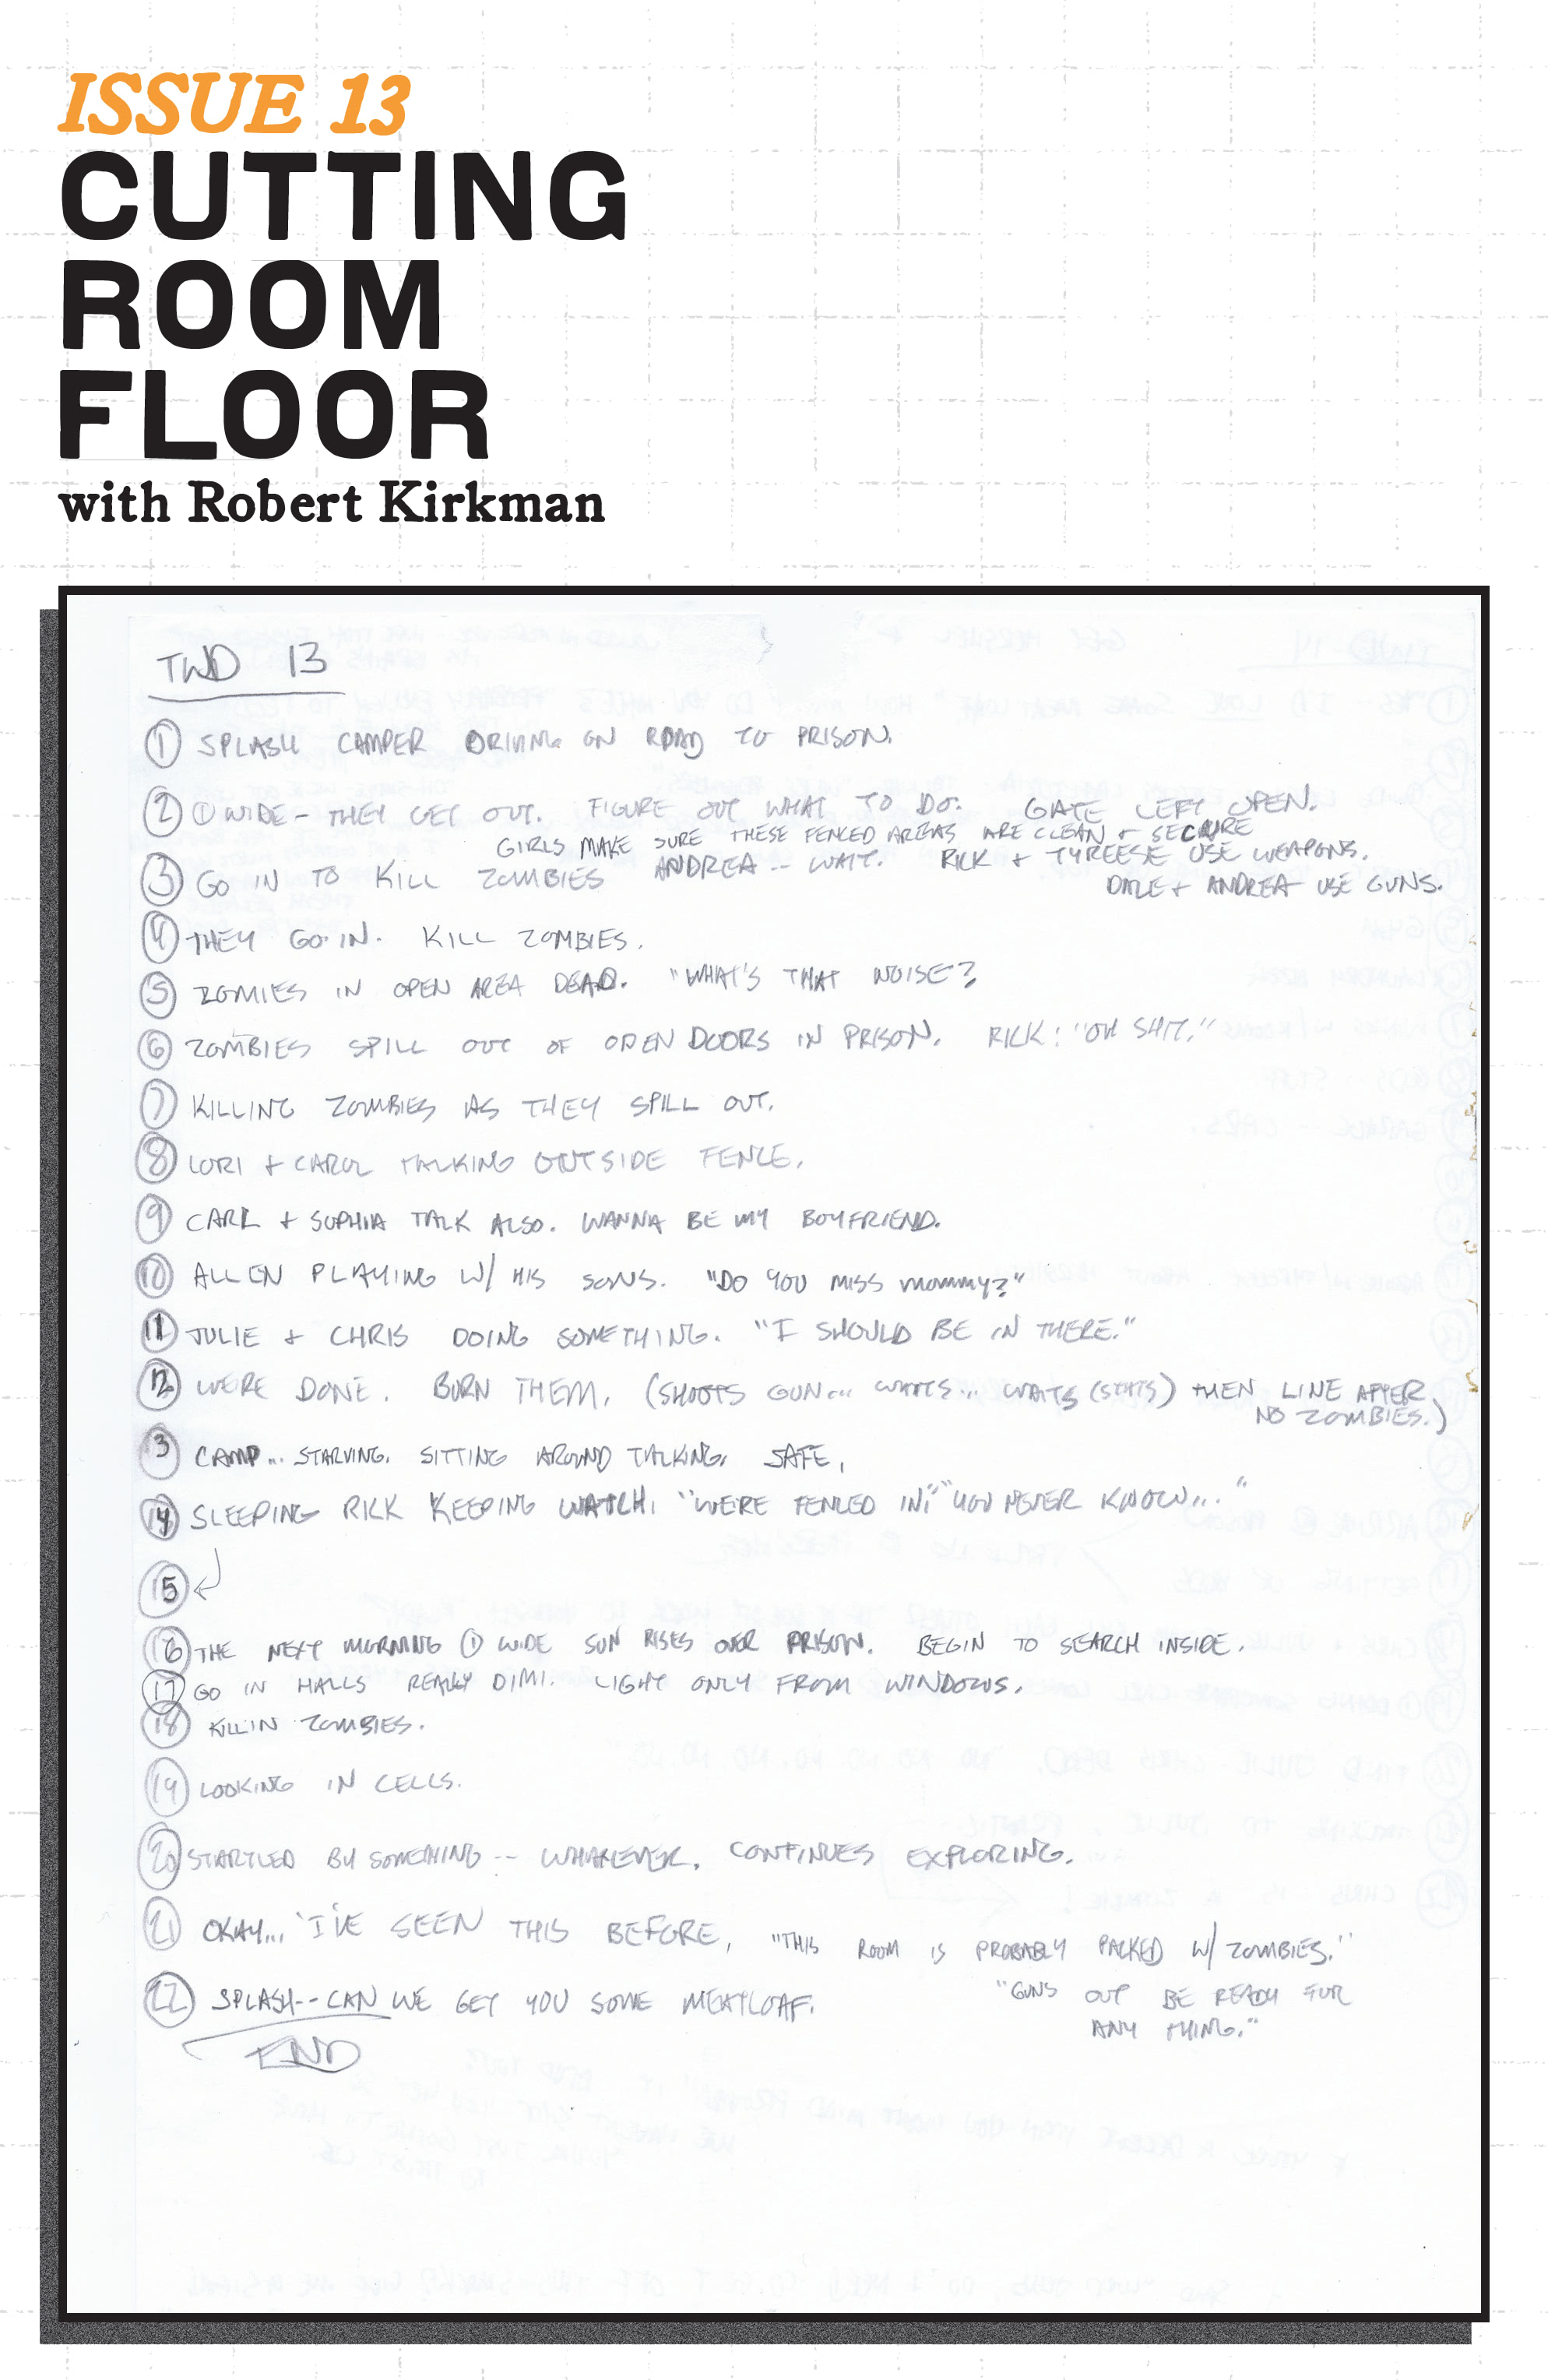 ISSUE 13
CUTTING
ROOM
FLOOR
with Robert Kirkman
TWD 13
① SPLASH CAMPER DRIVING ON ROAD TO PRISON.
② ① WIDE - THEY GET OUT. FIGURE OUT WHAT TO DO. GATE LEFT OPEN.
GIRLS MAKE SURE THESE FENCED AREAS ARE CLEAN + SECURE
③ GO IN TO KILL ZOMBIES ANDREA -- WAIT. RICK + TYREESE USE WEAPONS.
DALE + ANDREA USE GUNS.
④ THEY GO IN. KILL ZOMBIES.
⑤ ZOMIES IN OPEN AREA DEAD. "WHAT'S THAT NOISE?
⑥ ZOMBIES SPILL OUT OF OPEN DOORS IN PRISON. RICK: "OH SHIT."
⑦ KILLING ZOMBIES AS THEY SPILL OUT.
⑧ LORI + CAROL TALKING OUTSIDE FENCE.
⑨ CARL + SOPHIA TALK ALSO. WANNA BE MY BOYFRIEND.
⑩ ALLEN PLAYING W/ HIS SONS. "DO YOU MISS MOMMY?"
⑪ JULIE + CHRIS DOING SOMETHING. "I SHOULD BE IN THERE."
⑫ WE'RE DONE. BURN THEM. (SHOOTS GUN... WAITS... WAITS (STATS) THEN LINE AFTER
NO ZOMBIES.)
③ CAMP... STARVING. SITTING AROUND TALKING. SAFE.
⑭ SLEEPING RICK KEEPING WATCH. "WE'RE FENCED IN." "YOU NEVER KNOW..."
⑮
⑯ THE NEXT MORNING ① WIDE SUN RISES OVER PRISON. BEGIN TO SEARCH INSIDE.
⑰ GO IN HALLS REALLY DIM. LIGHT ONLY FROM WINDOWS.
⑱ KILLIN ZOMBIES.
⑲ LOOKING IN CELLS.
⑳ STARTLED BY SOMETHING -- WHATEVER. CONTINUES EXPLORING.
㉑ OKAY... I'VE SEEN THIS BEFORE. "THIS ROOM IS PROBABLY PACKED W/ ZOMBIES."
"GUNS OUT BE READY FOR
ANY THING."
㉒ SPLASH -- CAN WE GET YOU SOME MEATLOAF.
END